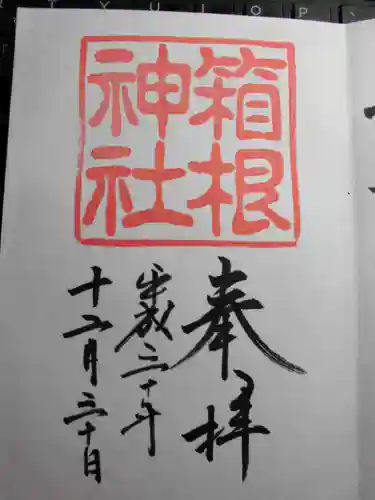 箱根
神社
奉拝
平成三十年
十二月三十日